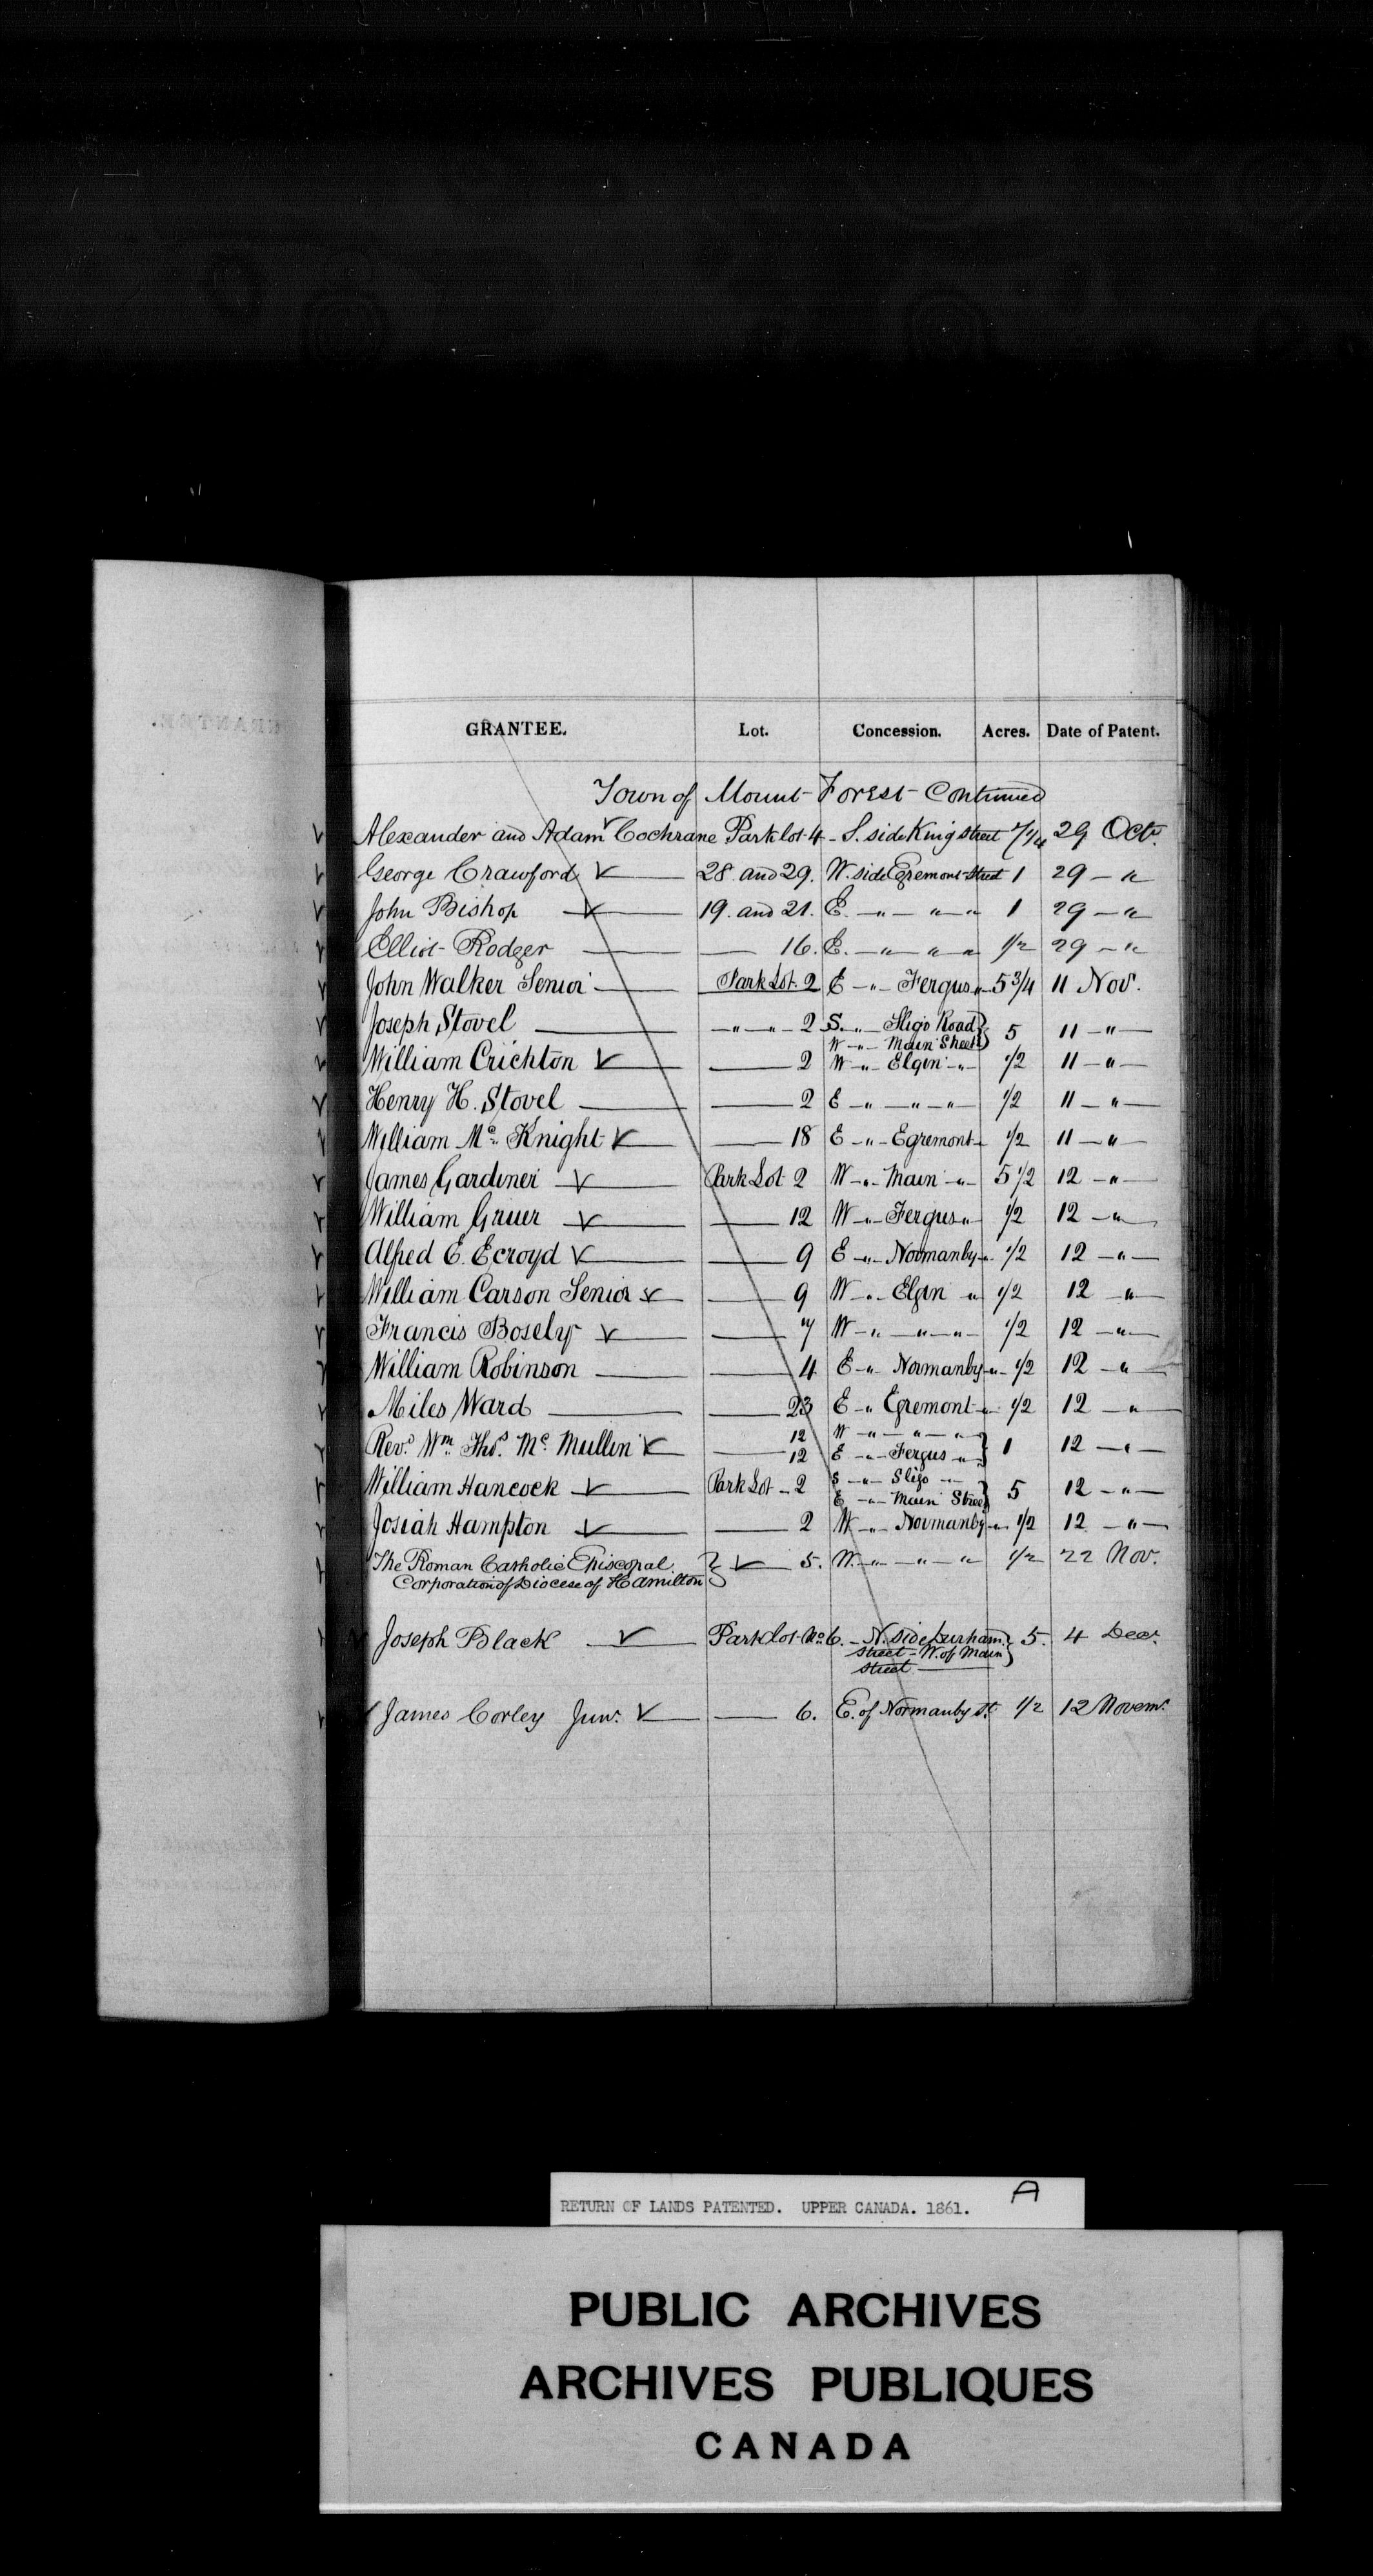 GRANTEE. Lot. Concession. Acres. Date of Patent.
Town of Mount Forest Continued
Alexander and Adam Cochrane Park lot 4 - S. side King street 7 1/4 29 Octr.
George Crawford 28. and 29. W. side Egremont Street 1 29 — "
John Bishop 19. and 21. E. — " — " — " 1 29 — "
Elliot Rodger — 16. E. — " " " 1/2 29 — "
John Walker Senior — Park Lot 2 E — " — Fergus " 5 3/4 11 Nov.
Joseph Stovel — " — " — 2 S. " — Sligo Road } 5 11 — " —
W — " — Main Street
William Crichton — 2 W — " — Elgin — " — 1/2 11 — " —
Henry H. Stovel — 2 E — " — " — " — 1/2 11 — " —
William Mc. Knight — 18 E — " — Egremont — 1/2 11 — " —
James Gardiner Park Lot 2 W — " — Main — " — 5 1/2 12 — " —
William Gruer — 12 W — " — Fergus " — 1/2 12 — " —
Alfred E. Ecroyd — 9 E — " — Normanby — " 1/2 12 — " —
William Carson Senior — 9 W — " — Elgin " 1/2 12 — " —
Francis Bosely — 7 W — " — " — " — 1/2 12 — " —
William Robinson — 4 E — " Normanby — " — 1/2 12 — " —
Miles Ward — 23 E — " Egremont — " — 1/2 12 — " —
12 W — " — " — "
Revd. Wm. Thos. Mc. Mullin — 12 E — " — Fergus — " } 1 12 — " —
William Hancock Park Lot — 2 S — " — Sligo — " — } 5 12 — " —
E — " — Main Street
Josiah Hampton — 2 W — " — Normanby — " — 1/2 12 — " —
The Roman Catholic Episcopal } — 5. W. — " — " — " 1/2 22 Nov.
Corporation of Diocese of Hamilton
Joseph Black Park lot No. 6. - N. side Durham } 5. 4 Decr.
street - W. of Main
street
James Corley Junr. — 6. E. of Normanby St. 1/2 12 Novemr.
RETURN OF LANDS PATENTED. UPPER CANADA. 1861. A
PUBLIC ARCHIVES
ARCHIVES PUBLIQUES
CANADA